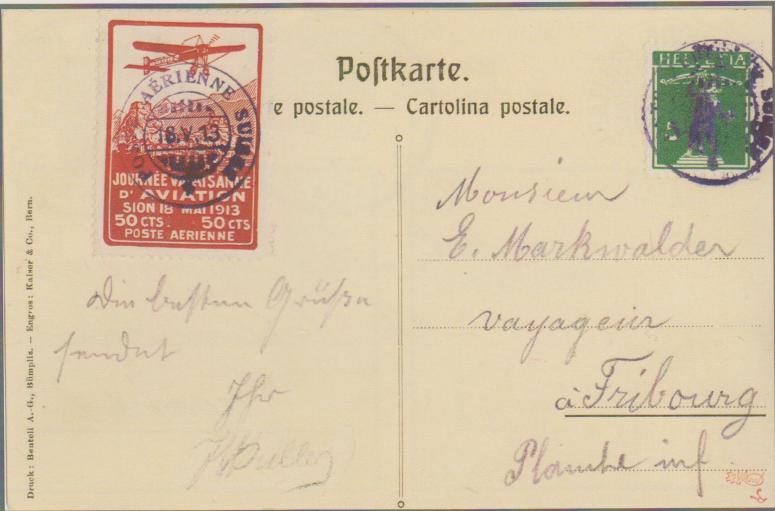 Postkarte.
e postale. — Cartolina postale.
HELVETIA
5
POSTE AÉRIENNE SUISSE
18.V.13
JOURNÉE VALAISANNE
D'AVIATION
SION 18 MAI 1913
50 CTS. 50 CTS
POSTE AERIENNE
Die besten Grüße
sendet
Ihr
Monsieur
E. Markwalder
vayageur
à Fribourg
Planche inf.
Druck: Benteli A.-G., Bümpliz. — Engros: Kaiser & Co., Bern.